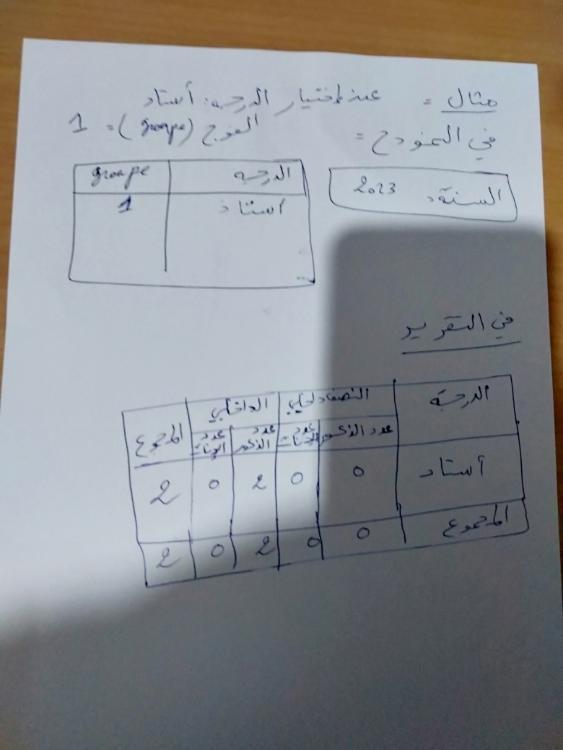 مثال = عند إختيار الدرجة: أستاذ
الفوج (groupe) = 1
في النموذج =
السنة: 2023
الدرجة groupe
أستاذ 1
في التقرير
الدرجة النصف داخلي الداخلي المجموع
عدد الذكور عدد البنات عدد الذكور عدد البنات
أستاذ 0 0 2 0 2
المجموع 0 0 2 0 2